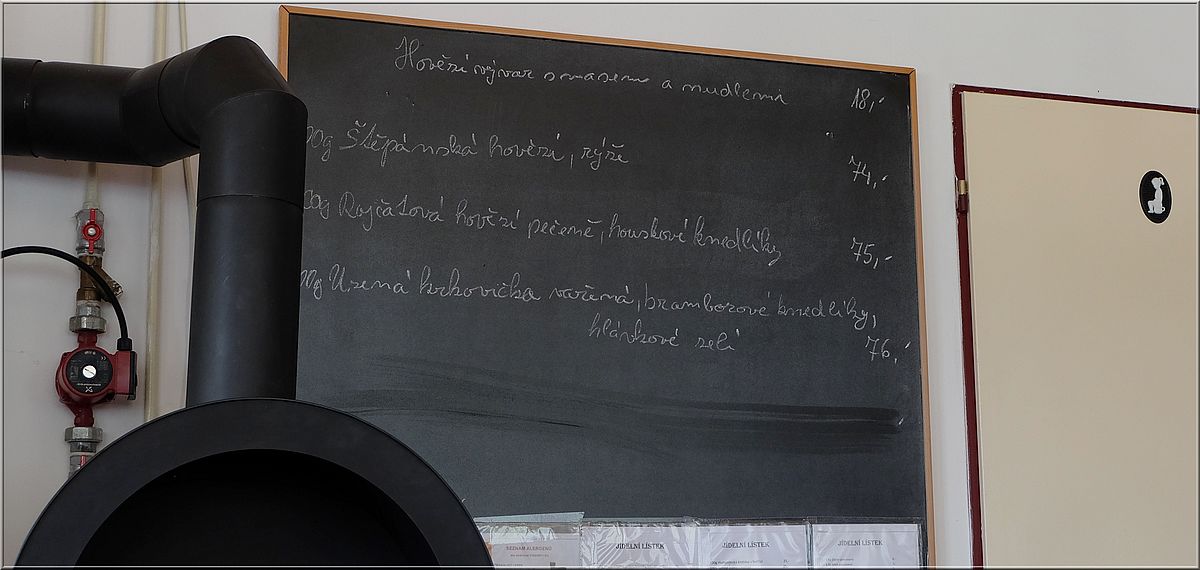 Hovězí vývar s masem a nudlemi 18,-
00g Štěpánská hovězí, rýže 74,-
00g Rajčatová hovězí pečeně, houskové knedlíky 75,-
00g Uzená krkovička vařená, bramborové knedlíky,
hlávkové zelí 76,-
SEZNAM ALERGENŮ
JÍDELNÍ LÍSTEK
JÍDELNÍ LÍSTEK
JÍDELNÍ LÍSTEK